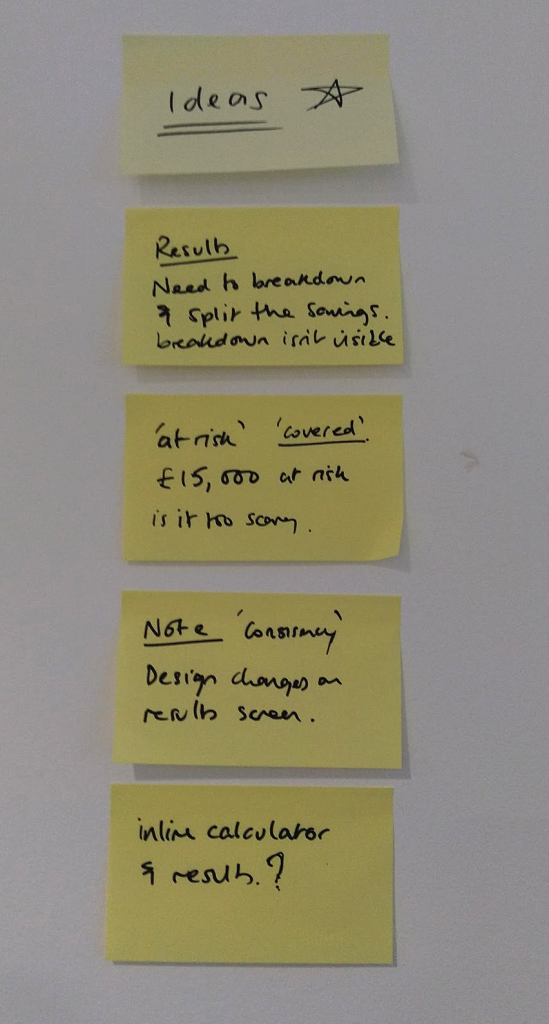 Ideas
Results
Need to breakdown
& split the savings.
breakdown isn't visible
'at risk' 'covered'.
£15,000 at risk
is it too scary.
Note 'consistency'
Design changes on
results screen.
inline calculator
& results.?